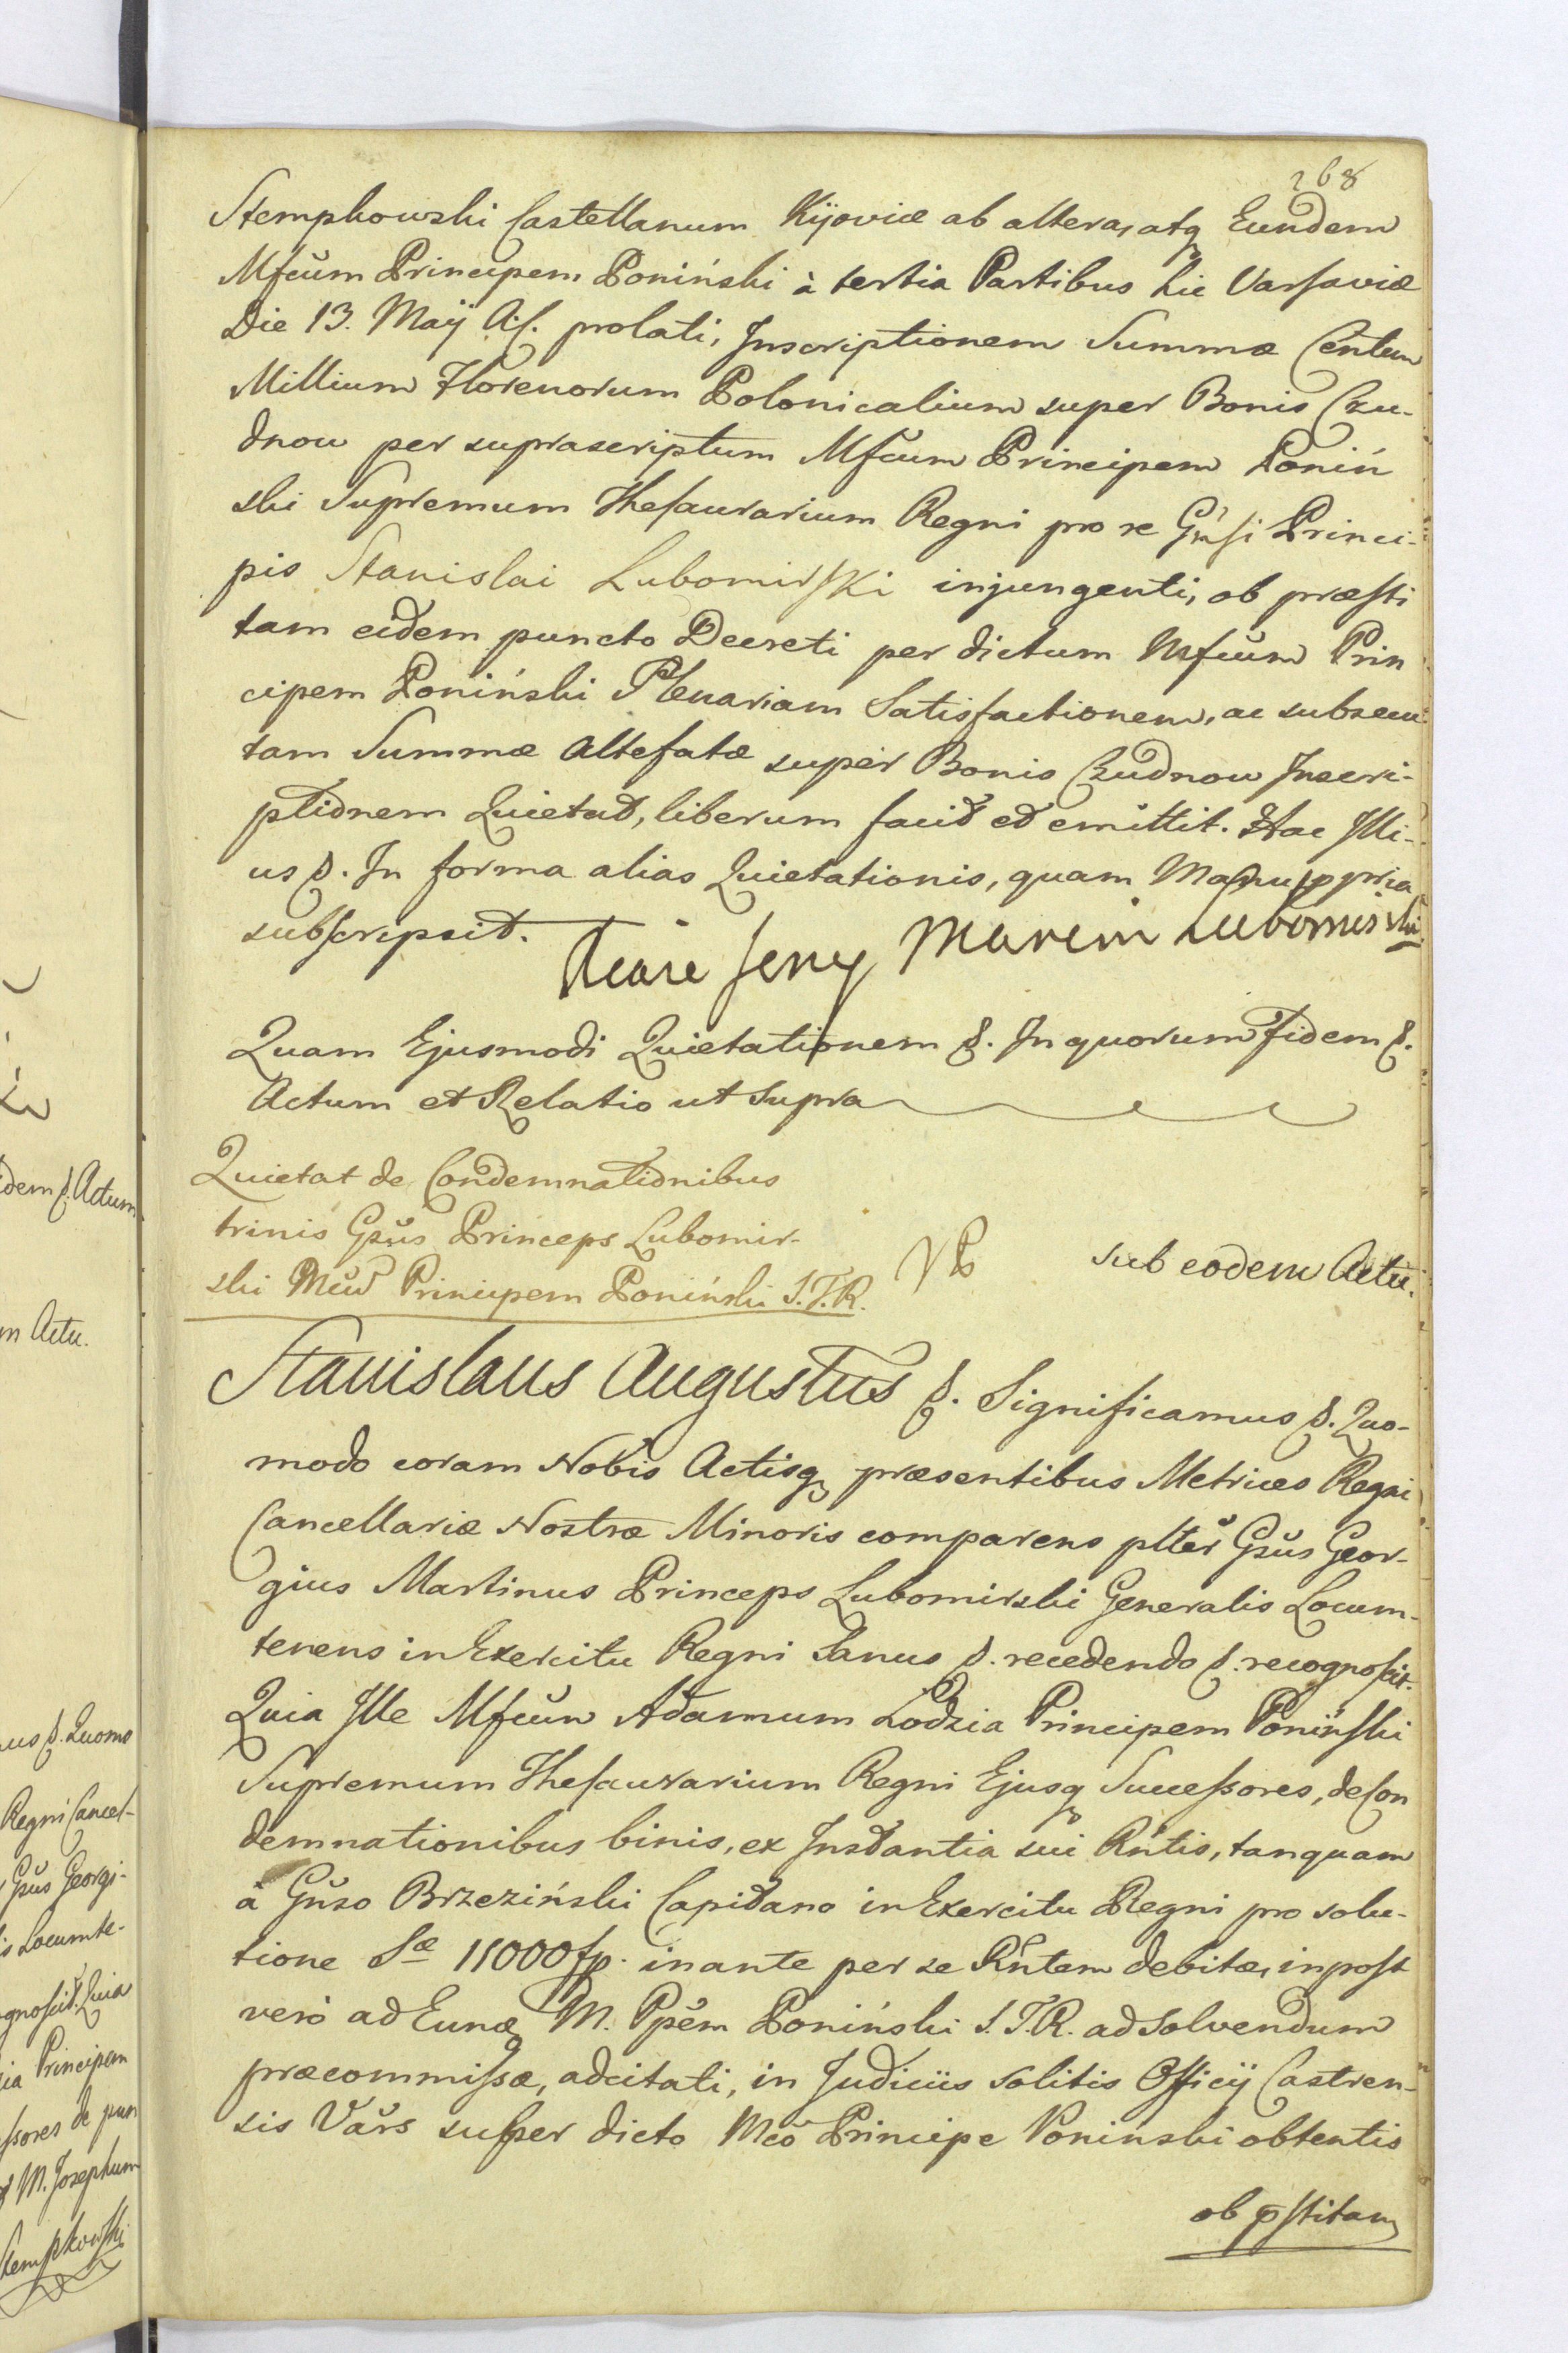 268
Stempkowski Castellanum Kijoviæ ab altera, atq Eundem
Mfcum Principem Poniński à tertia Partibus hic Varsaviæ
Die 13. Maij A.c. prolati, Inscriptionem Summæ Centum
Millium Florenorum Polonicalium super Bonis Czu-
dnow per suprascriptum Mfcum Principem Poniń
ski Supremum Thesaurarium Regni pro re Gnsi Princi-
pis Stanislai Lubomirski injungenti, ob præsti
tam eidem puncto Decreti per dictum Mfcum Prin
cipem Poniński Plenariam Satisfactionem, ac subsecu
tam Summæ Altefatæ super Bonis Czudnow Inscri-
ptionem Quietat, liberum facit et emittit. Hac Illi-
us p. In forma alias Quietationis, quam Manu ppria
subscripsit.
Jerzy Marcin Lubomirski
Quam Ejusmodi Quietationem p. In quorum Fidem p.
Actum et Relatio ut supra
Quietat de Condemnationibus
trinis Gsus Princeps Lubomir-
ski Mcum Principem Poniński S.T.R.
sub eodem Actu.
Stanislaus Augustus p. Significamus p. Quo-
modo coram Nobis Actisq præsentibus Metrices Regni
Cancellariæ Nostræ Minoris comparens plter Gsus Geor-
gius Martinus Princeps Lubomirski Generalis Locum-
tenens in Exercitu Regni Sanus p. recedendo p. recognoscit.
Quia Ille Mfcum Adamum Lodzia Principem Poniński
Supremum Thesaurarium Regni Ejusq Successores, de Con
demnationibus binis, ex Instantia sui Rntis, tanquam
à Gnso Brzeziński Capitano in Exercitu Regni pro solu-
tione Sæ 11000 fp. inante per se Rntem debitæ, inpost
verò ad Eund M. Ppem Poniński S.T.R. ad solvendum
præcommissæ, adcitati, in Judiciis solitis Officij Castren-
sis Vars super dicto Mco Principe Poninski obtentis
ob pstitam
dem p. Actum
m Actu.
us p. Quomo
Regni Cancel-
Gsus Georgi-
is Locumte-
gnoscit. Quia
ia Principem
ssores de pun
M. Josephum
Stempkowski